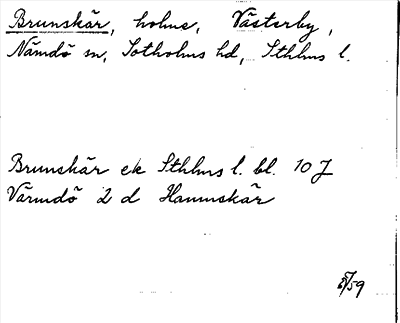 Brunskär, holme, Västerby,
Nämdö sn, Sotholms hd, Sthlms l.
Brunskär ek Sthlms l. bl. 10 J
Värmdö 2 d Hamnskär